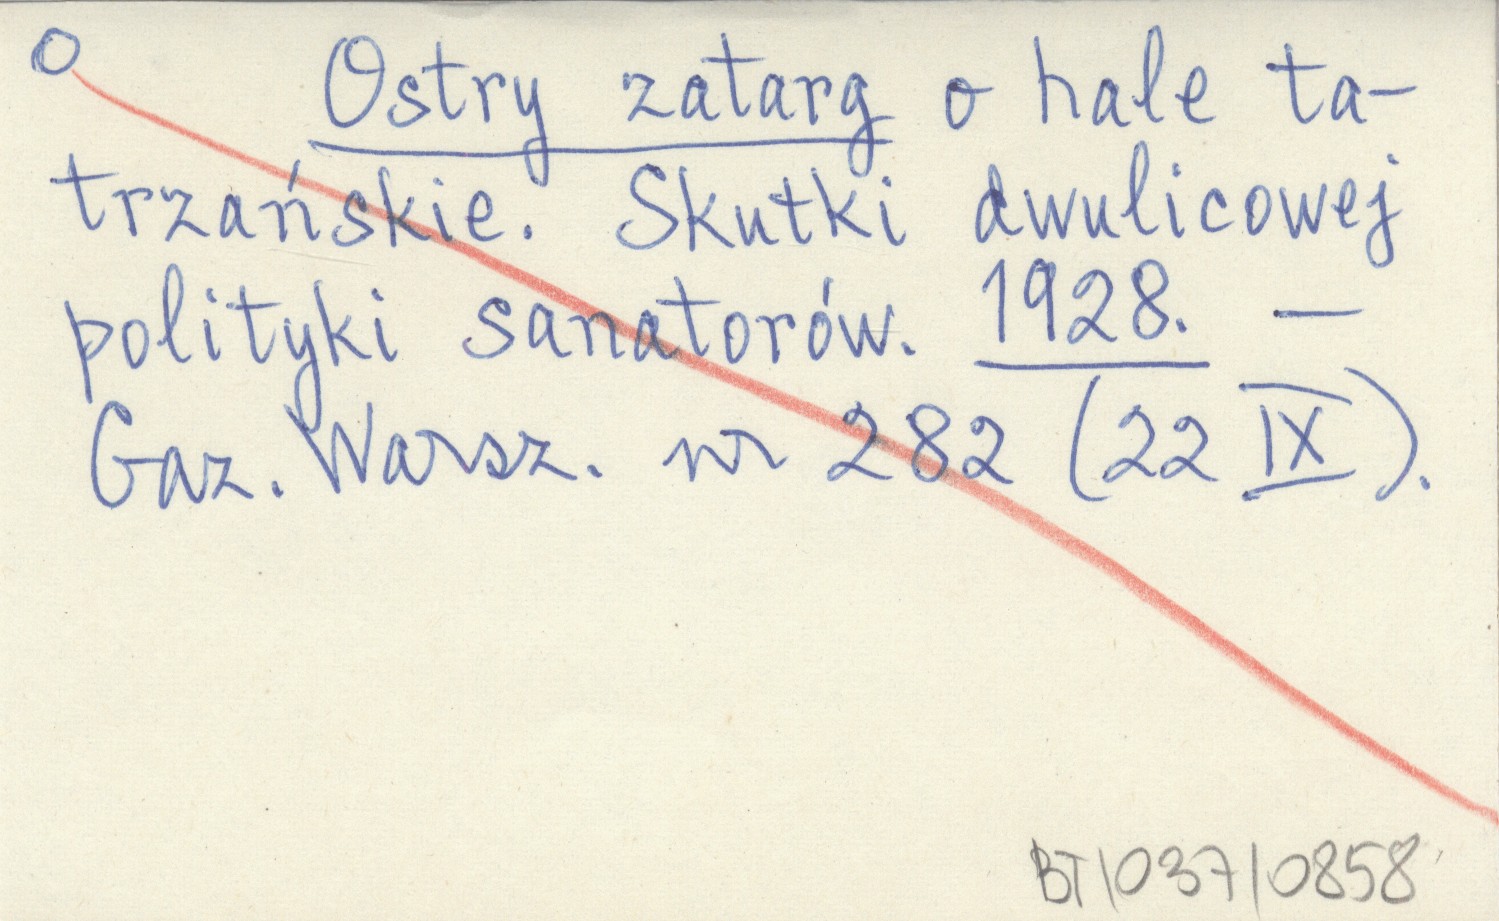 O
Ostry zatarg o hale ta-
trzańskie. Skutki dwulicowej
polityki sanatorów. 1928. —
Gaz. Warsz. nr 282 (22 IX).
BT/037/0858